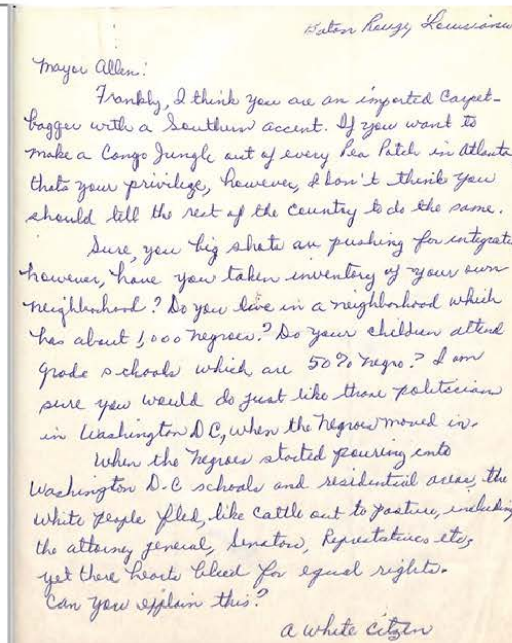 Baton Rouge, Louisiana
Mayor Allen:
Frankly, I think you are an imported Carpet-
bagger with a Southern accent. If you want to
make a Congo Jungle out of every Pea Patch in Atlanta
thats your privilige, however, I don't think you
should tell the rest of the country to do the same.
Sure, you big shots are pushing for integrati
however, have you taken inventory of your own
neighborhood? Do you live in a neighborhood which
has about 1,000 negroes? Do your children attend
grade schools which are 50% negro? I am
sure you would do just like those politician
in Washington DC, when the negroes moved in.
When the negroes started pouring into
Washington D.C schools and residential areas, the
white people fled, like cattle out to pasture, including
the attorney general, Senators, Represtatives etc,
yet there hearts bleed for equal rights.
Can you explain this?
a white citzen